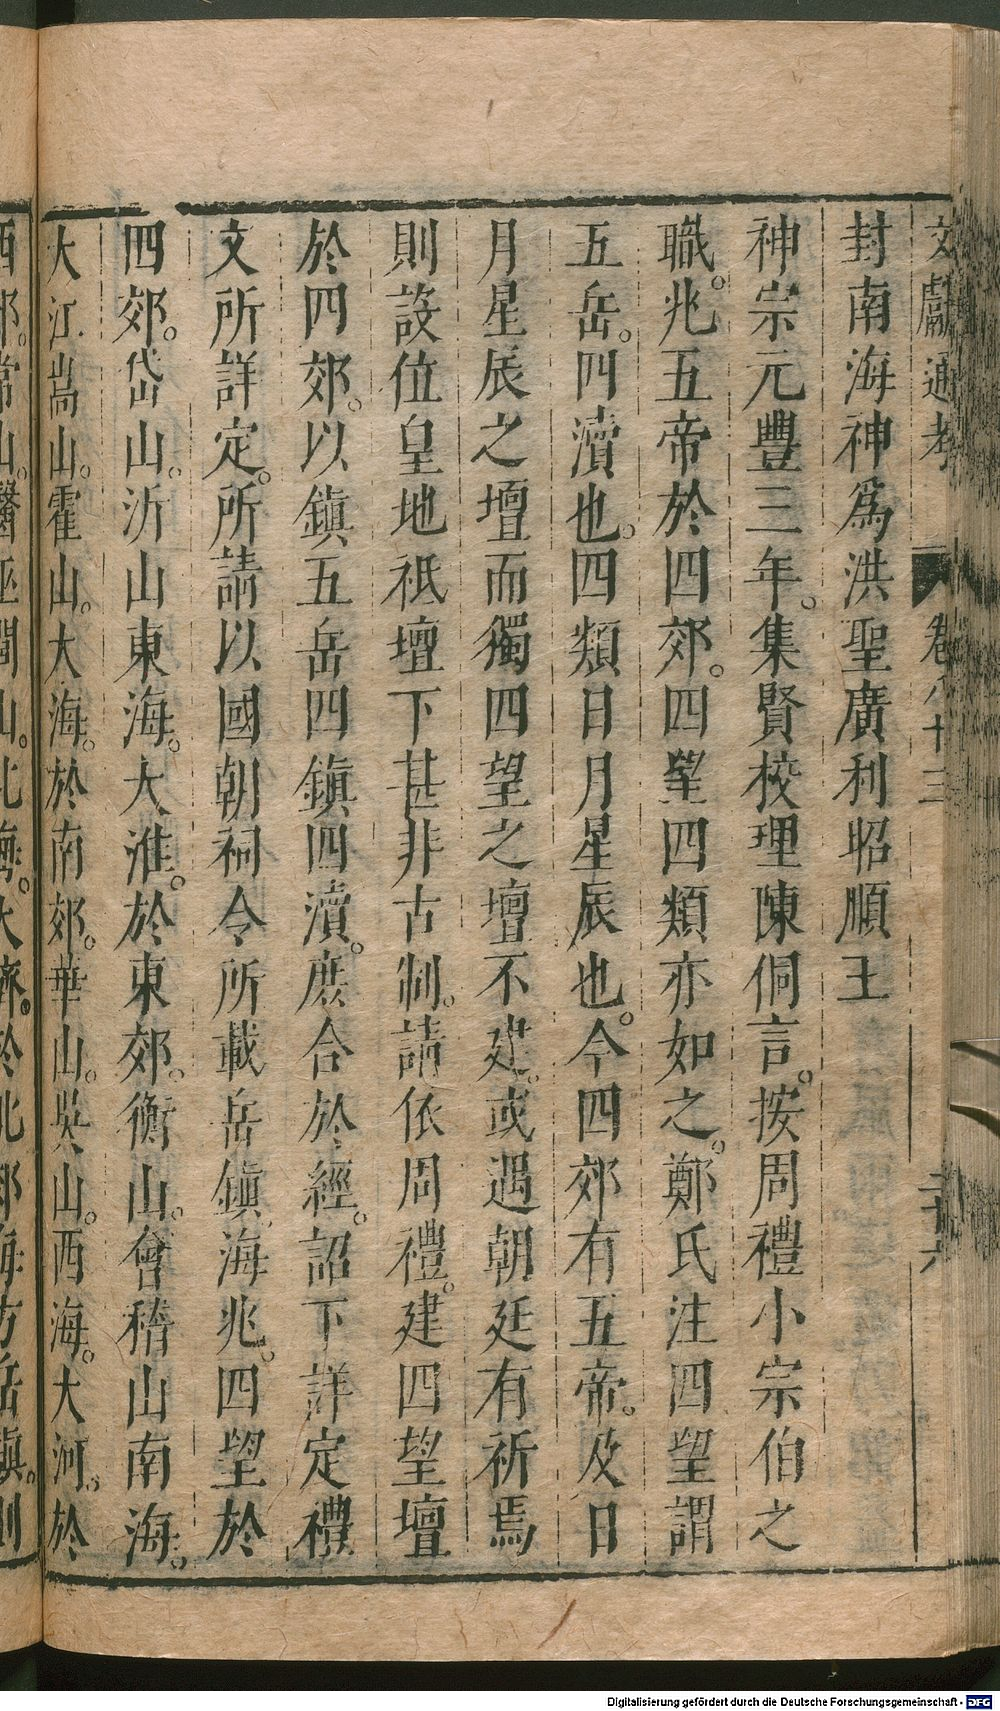 文獻通考 卷八十三 二十六
封南海神爲洪聖廣利昭順王
神宗元豐三年。集賢校理陳侗言。按周禮小宗伯之
職。兆五帝於四郊。四望四類亦如之。鄭氏注四望謂
五岳。四瀆也。四類日月星辰也。今四郊有五帝。及日
月星辰之壇而獨四望之壇不建。或遇朝廷有祈焉
則設位皇地祇壇下甚非古制。請依周禮。建四望壇
於四郊。以鎮五岳四鎮四瀆。庶合於經。詔下詳定禮
文所詳定。所請以國朝祠令所載岳鎮海兆。四望於
四郊。岱山。沂山東海。大淮。於東郊。衡山。會稽山南海。
大江嵩山。霍山。大海。於南郊。華山。吳山。西海。大河。於
西郊。常山。醫巫閭山。北海。大濟。於北郊海方岳鎮。則
Digitalisierung gefördert durch die Deutsche Forschungsgemeinschaft - DFG